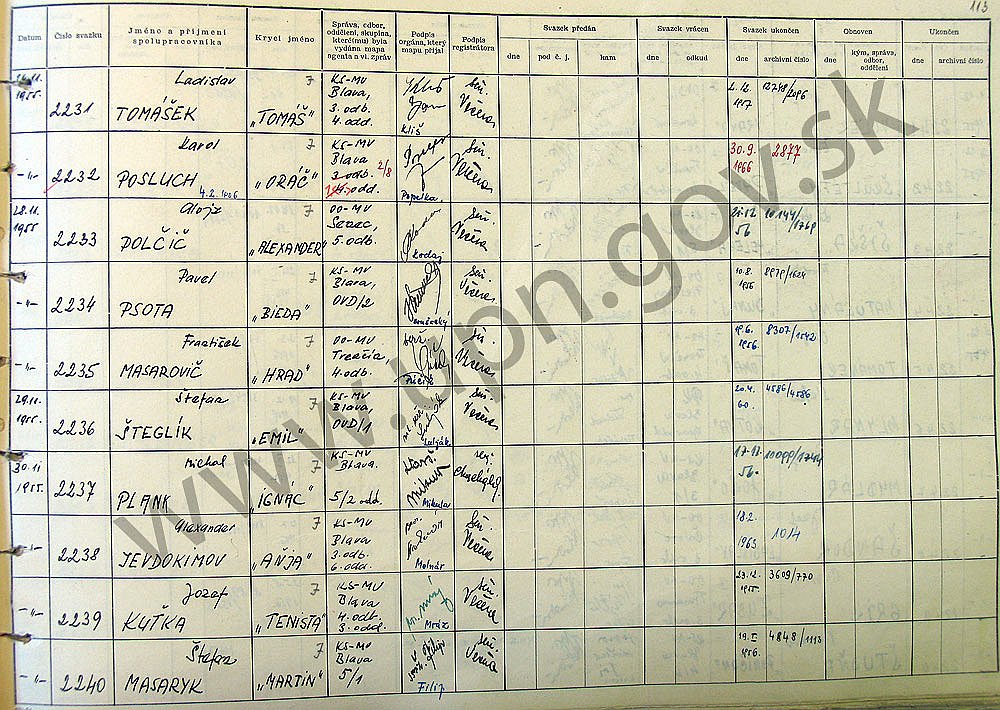 113
Datum
Číslo svazku
Jméno a příjmení
spolupracovníka
Krycí jméno
Správa, odbor,
oddělení, skupina,
které(mu) byla
vydána mapa
agenta a vl. zpráv
Podpis
orgána, který
mapu přijal
Podpis
registrátora
Svazek předán
dne
pod č. j.
kam
Svazek vrácen
dne
odkud
Svazek ukončen
dne
archivní číslo
Obnoven
dne
kým, správa,
odbor,
oddělení
Ukončen
dne
archivní číslo
1955.
2231
Ladislav 7
TOMÁŠEK
„TOMÁŠ"
KS-MV
Blava,
3. odb.
4. odd.
Kliš
Večera
2. 12.
1957
-"-
2232
Karol 7
POSLUCH
„ORÁČ"
KS-MV
Blava
3. odb. 2/8
4. odd.
Popelka
Večera
30. 9.
1966
2877
28.11.
1955
2233
Alojz 7
POLČIČ
„ALEXANDER"
OO-MV
Senec,
5. odb.
Večera
56
10144/1769
-"-
2234
Pavel 7
PSOTA
„BIEDA"
KS-MV
Blava,
OVD/2
Večera
10.8.
1956
8979/1624
-"-
2235
František 7
MASAROVIČ
„HRAD"
OO-MV
Trenčín,
4. odb.
Večera
19.6.
1956.
8307/1542
29.11.
1955.
2236
Štefan 7
ŠTEGLÍK
„EMIL"
KS-MV
Blava,
OVD/1
Večera
20.4.
60.
4586/4586
30.11
1955.
2237
Michal 7
PLANK
„IGNÁC"
KS-MV
Blava.
5/2 odd.
Mikuša
17.11.
56.
10099/1744
-"-
2238
Alexander 7
JEVDOKIMOV
„AŇJA"
KS-MV
Blava
3. odb.
6. odd.
Molnár
Večera
18.2.
1963.
-"-
2239
Jozef 7
KUŤKA
„TENISTA"
KS-MV
Blava
4. odb.
3. odd.
Mráz
Večera
23.12.
1955.
3609/770
-"-
2240
Štefan 7
MASARYK
„MARTIN"
KS-MV
Blava
5/1
Filip
Večera
1956.
4848/1113
www.upn.gov.sk